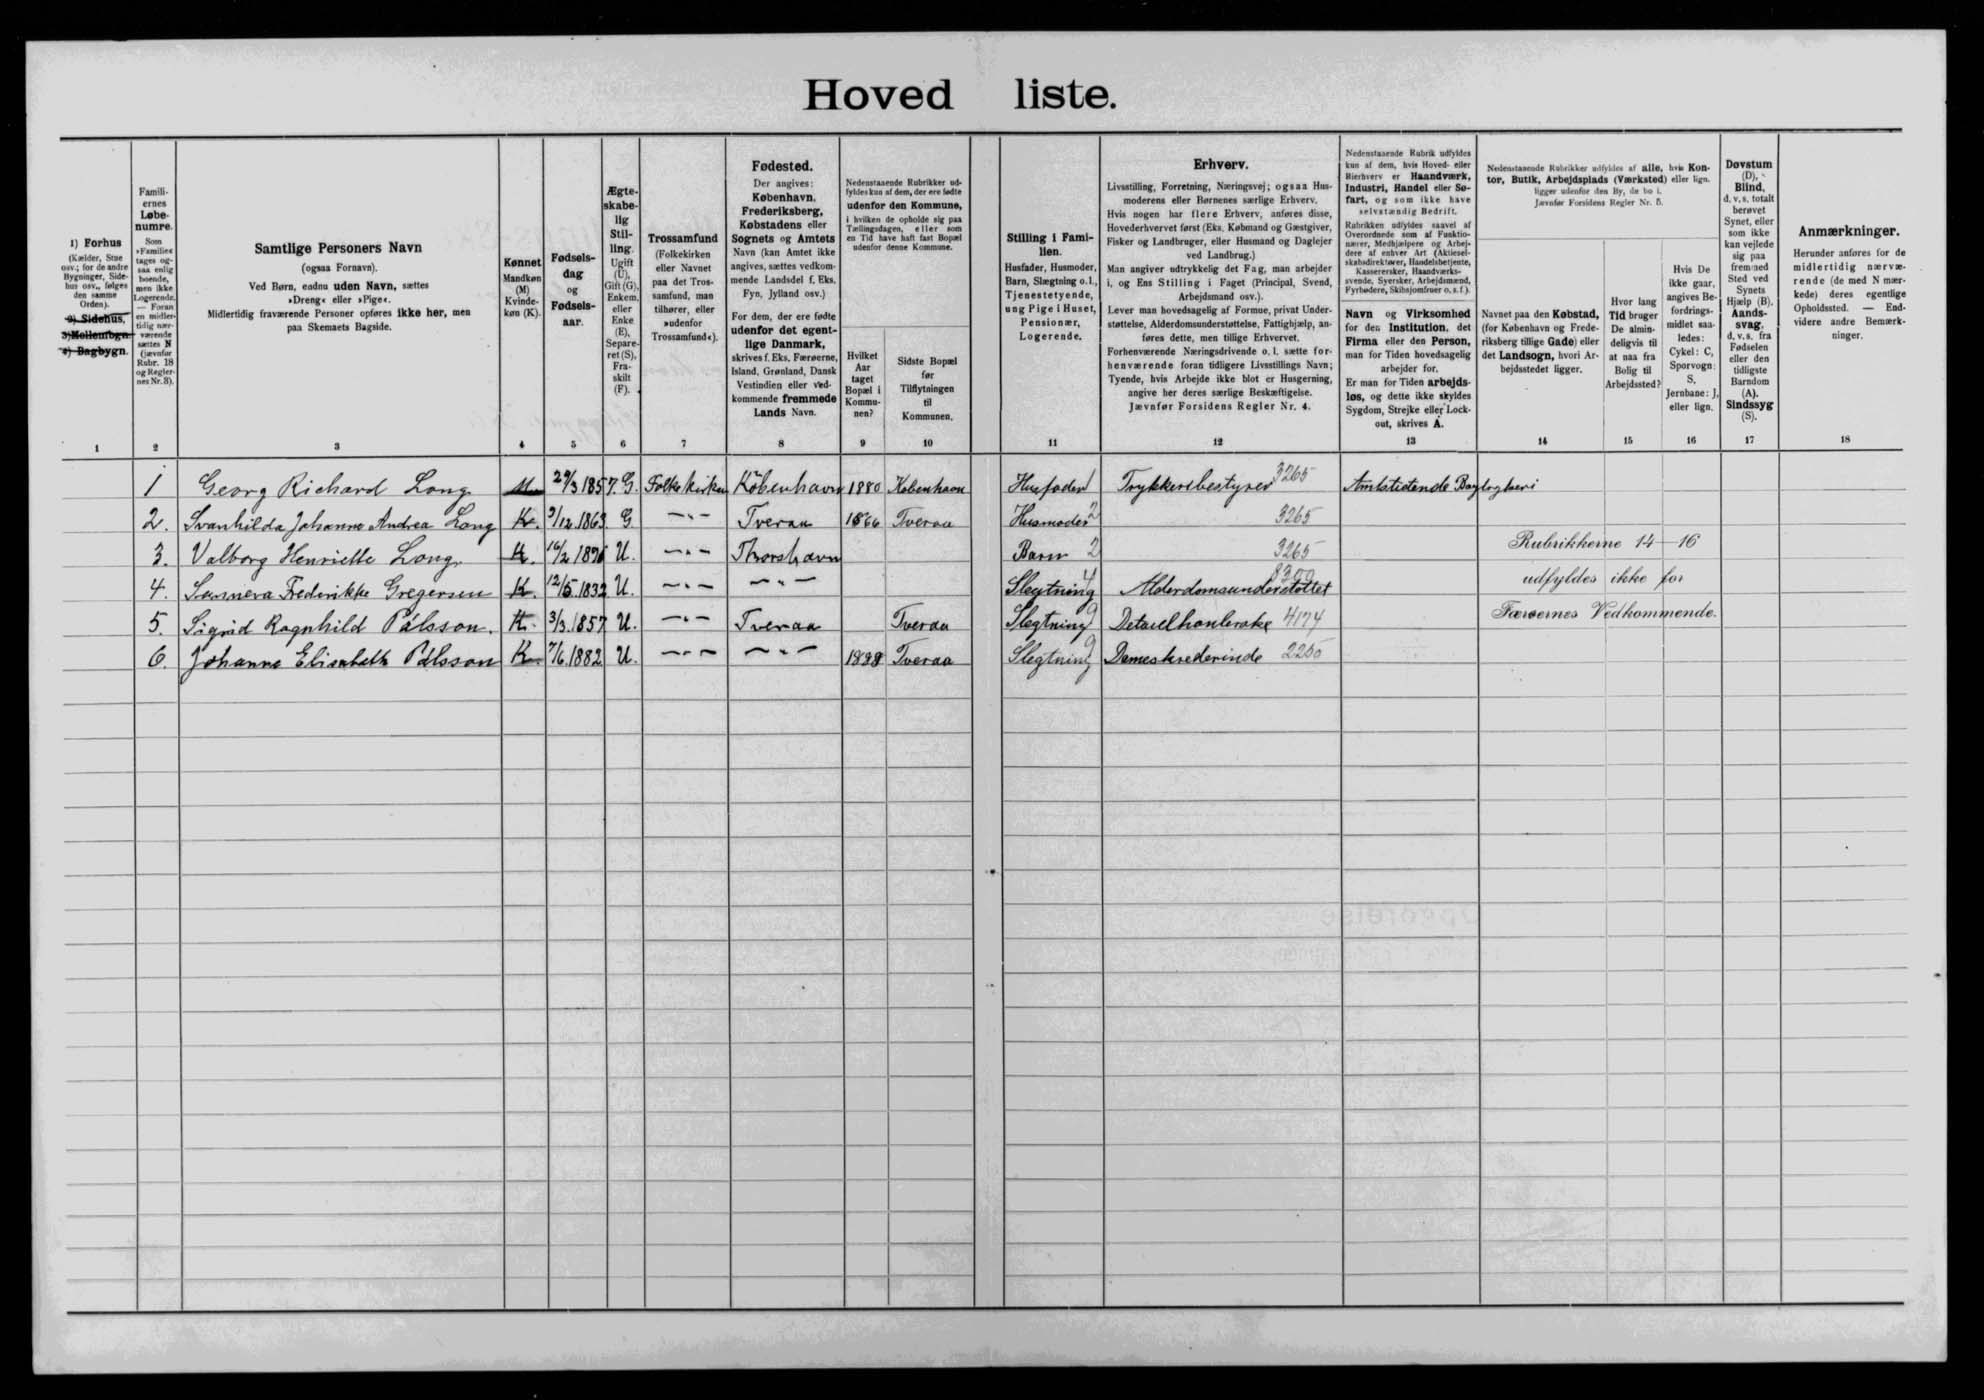 Hoved liste.
1) Forhus
(Kælder, Stue
osv.; for de andre
Bygninger, Side-
hus osv., følges
den samme
Orden).
2) Sidehus,
3) Mellembgn.
4) Bagbygn.
1
Famili-
ernes
Løbe-
numre.
Som
»Familie«
tages og-
saa enlig
boende,
men ikke
Logerende.
— Foran
en midler-
tidig nær-
værende
sættes N
(jævnfør
Rubr. 18
og Regler-
nes Nr. 3).
2
Samtlige Personers Navn
(ogsaa Fornavn).
Ved Børn, endnu uden Navn, sættes
»Dreng« eller »Pige«.
Midlertidig fraværende Personer opføres ikke her, men
paa Skemaets Bagside.
3
Kønnet
Mandkøn
(M)
Kvinde-
køn (K).
4
Fødsels-
dag
og
Fødsels-
aar.
5
Ægte-
skabe-
lig
Stil-
ling.
Ugift
(U),
Gift (G),
Enkem.
eller
Enke
(E),
Separe-
ret (S),
Fra-
skilt
(F).
6
Trossamfund
(Folkekirken
eller Navnet
paa det Tros-
samfund, man
tilhører, eller
»udenfor
Trossamfund«).
7
Fødested.
Der angives:
København,
Frederiksberg,
Købstadens eller
Sognets og Amtets
Navn (kan Amtet ikke
angives, sættes vedkom-
mende Landsdel f. Eks.
Fyn, Jylland osv.)
For dem, der ere fødte
udenfor det egent-
lige Danmark,
skrives f. Eks. Færøerne,
Island, Grønland, Dansk
Vestindien eller ved-
kommende fremmede
Lands Navn.
8
Nedenstaaende Rubrikker ud-
fyldes kun af dem, der ere fødte
udenfor den Kommune,
i hvilken de opholde sig paa
Tællingsdagen, eller som
en Tid have haft fast Bopæl
udenfor denne Kommune.
Hvilket
Aar
taget
Bopæl i
Kommu-
nen?
9
Sidste Bopæl
før
Tilflytningen
til
Kommunen.
10
Stilling i Fami-
lien.
Husfader, Husmoder,
Barn, Slægtning o.l.,
Tjenestetyende,
ung Pige i Huset,
Pensionær,
Logerende.
11
Erhverv.
Livsstilling, Forretning, Næringsvej; ogsaa Hus-
moderens eller Børnenes særlige Erhverv.
Hvis nogen har flere Erhverv, anføres disse,
Hovederhvervet først (Eks. Købmand og Gæstgiver,
Fisker og Landbruger, eller Husmand og Daglejer
ved Landbrug.)
Man angiver udtrykkelig det Fag, man arbejder
i, og Ens Stilling i Faget (Principal, Svend,
Arbejdsmand osv.).
Lever man hovedsagelig af Formue, privat Under-
støttelse, Alderdomsunderstøttelse, Fattighjælp, an-
føres dette, men tillige Erhvervet.
Forhenværende Næringsdrivende o. l. sætte for-
henværende foran tidligere Livsstillings Navn;
Tyende, hvis Arbejde ikke blot er Husgerning,
angive her deres særlige Beskæftigelse.
Jævnfør Forsidens Regler Nr. 4.
12
Nedenstaaende Rubrik udfyldes
kun af dem, hvis Hoved- eller
Bierhverv er Haandværk,
Industri, Handel eller Sø-
fart, og som ikke have
selvstændig Bedrift.
Rubrikken udfyldes saavel af
Overordnede som af Funktio-
nærer, Medhjælpere og Arbej-
dere af enhver Art (Aktiesel-
skabsdirektører, Handelsbetjente,
Kasserersker, Haandværks-
svende, Syersker, Arbejdsmænd,
Fyrbødere, Skibsjomfruer o. s. f.).
Navn og Virksomhed
for den Institution, det
Firma eller den Person,
man for Tiden hovedsagelig
arbejder for.
Er man for Tiden arbejds-
løs, og dette ikke skyldes
Sygdom, Strejke eller Lock-
out, skrives A.
13
Nedenstaaende Rubrikker udfyldes af alle, hvis Kon-
tor, Butik, Arbejdsplads (Værksted) eller lign.
ligger udenfor den By, de bo i.
Jævnfør Forsidens Regler Nr. 5.
Navnet paa den Købstad,
(for København og Frede-
riksberg tillige Gade) eller
det Landsogn, hvori Ar-
bejdsstedet ligger.
14
Hvor lang
Tid bruger
De almin-
deligvis til
at naa fra
Bolig til
Arbejdssted?
15
Hvis De
ikke gaar,
angives Be-
fordrings-
midlet saa-
ledes:
Cykel: C,
Sporvogn:
S,
Jernbane: J,
eller lign.
16
Døvstum
(D),
Blind,
d. v. s. totalt
berøvet
Synet, eller
som ikke
kan vejlede
sig paa
fremmed
Sted ved
Synets
Hjælp (B).
Aands-
svag,
d. v. s. fra
Fødselen
eller den
tidligste
Barndom
(A).
Sindssyg
(S).
17
Anmærkninger.
Herunder anføres for de
midlertidig nærvæ-
rende (de med N mær-
kede) deres egentlige
Opholdssted. — End-
videre andre Bemærk-
ninger.
18
1 Georg Richard Long M 29/3 1857. G. Folkekirken København 1880 København Husfader 1 Trykkeribestyrer 3265 Amtstidende Bogtrykkeri
2. Svanhilda Johanne Andrea Long K. 3/12.1863 G. —„— Tveraa 1866 Tveraa Husmoder 2 3265
3. Valborg Henriette Long. K. 16/2 1890 U. —„— Thorshavn Barn 2 3265 Rubrikkerne 14—16
4. Frederikke Gregersen K. 12/5 1832 U. —„— —„— Slegtning 4 Alderdomsunderstøttet 8300 udfyldes ikke for
5. Sigrid Ragnhild Pálsson. K. 3/3.1857 U. —„— Tveraa Tveraa Slegtning 9 4174 Færøernes Vedkommende.
6. Johanne Elisabeth Pálsson K. 7/6.1882 U. —„— —„— Tveraa Slegtning 9 Dameskrederinde 2250